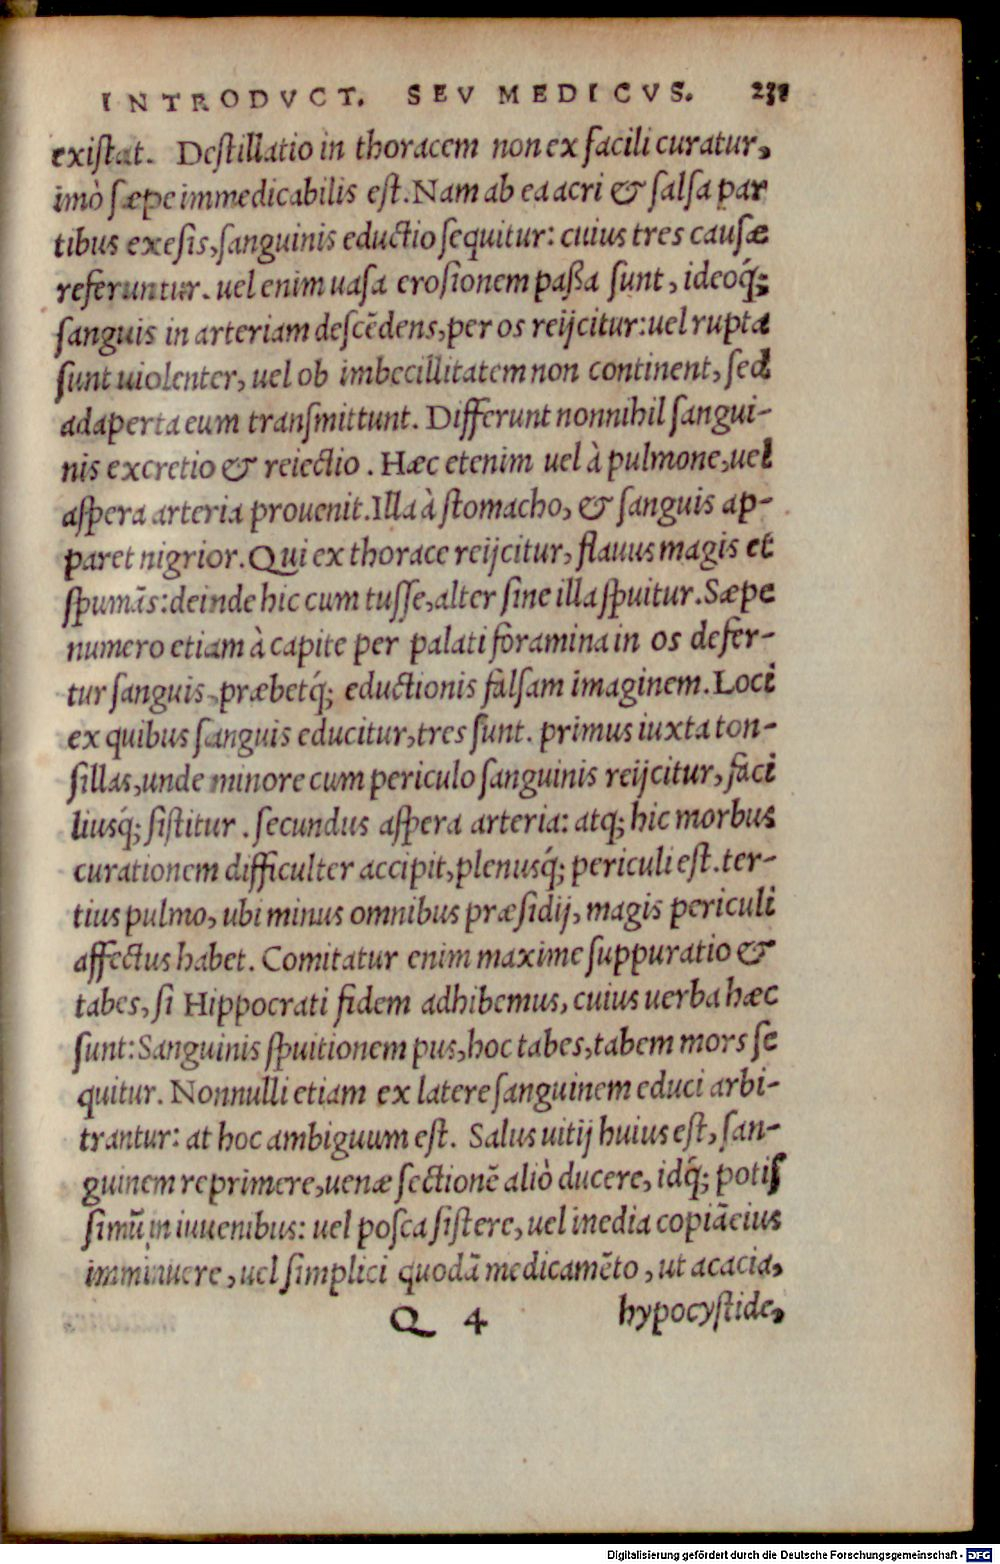 INTRODVCT. SEV MEDICVS.
existat. Destillatio in thoracem non ex facili curatur,
imò sæpe immedicabilis est. Nam ab ea acri & salsa par
tibus exesis, sanguinis eductio sequitur: cuius tres causæ
referuntur. uel enim uasa erosionem paßa sunt, ideoq́;
sanguis in arteriam descēdens, per os reijcitur: uel rupta
sunt uiolenter, uel ob imbecillitatem non continent, sed
adaperta eum transmittunt. Differunt nonnihil sangui-
nis excretio & reiectio. Hæc etenim uel à pulmone, uel
aspera arteria prouenit. Illa à stomacho, & sanguis ap-
paret nigrior. Qui ex thorace reijcitur, flauus magis et
spumās: deinde hic cum tusse, alter sine illa spuitur. Sæpe
numero etiam à capite per palati foramina in os defer-
tur sanguis, præbetq́; eductionis falsam imaginem. Loci
ex quibus sanguis educitur, tres sunt. primus iuxta ton-
sillas, unde minore cum periculo sanguinis reijcitur, faci
liusq́; sistitur. secundus aspera arteria: atq; hic morbus
curationem difficulter accipit, plenusq́; periculi est. ter-
tius pulmo, ubi minus omnibus præsidij, magis periculi
affectus habet. Comitatur enim maxime suppuratio &
tabes, si Hippocrati fidem adhibemus, cuius uerba hæc
sunt: Sanguinis spuitionem pus, hoc tabes, tabem mors se
quitur. Nonnulli etiam ex latere sanguinem educi arbi-
trantur: at hoc ambiguum est. Salus uitij huius est, san-
guinem reprimere, uenæ sectionē aliò ducere, idq́; potis
simū in iuuenibus: uel posca sistere, uel inedia copiā eius
imminuere, uel simplici quodā medicamēto, ut acacia,
Q 4 hypocystide,
Digitalisierung gefördert durch die Deutsche Forschungsgemeinschaft - DFG